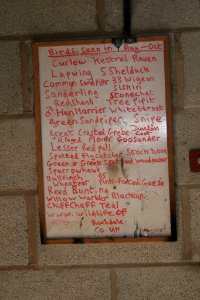 Birds seen in Aug-Oct
Curlew Kestrel Raven
Lapwing 5 Shelduck
Common Sandpiper 33 Wigeon
Sanderling Siskin
Stonechat
Redshank Tree Pipit
Hen Harrier Whitethroat
Green Sandpiper Snipe
Great Crested Grebe
Ringed Plover Goosander
Lesser Redpoll
Spotted Flycatcher Stock Dove
Green & Great Spotted Woodpecker
Sparrowhawk
Bullfinch
Wheatear Pink-Footed Geese
Reed Bunting
Willow Warbler Blackcap
Chiffchaff Teal
www.wildlife of
Rochdale
co.uk